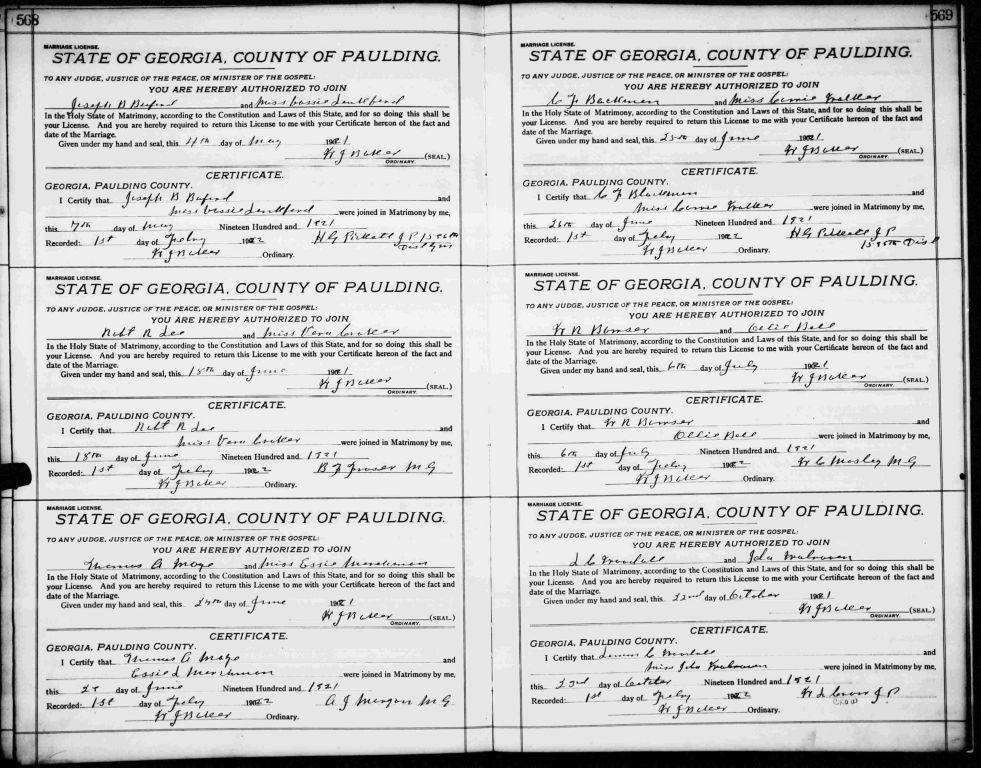 568
MARRIAGE LICENSE.
STATE OF GEORGIA, COUNTY OF PAULDING.
TO ANY JUDGE, JUSTICE OF THE PEACE, OR MINISTER OF THE GOSPEL:
YOU ARE HEREBY AUTHORIZED TO JOIN
Joseph B Buford and Miss Vassie Lunkford
In the Holy State of Matrimony, according to the Constitution and Laws of this State, and for so doing this shall be
your License. And you are hereby required to return this License to me with your Certificate hereon of the fact and
date of the Marriage.
Given under my hand and seal, this 4th day of May 1921
W J Baker (SEAL.)
ORDINARY.
CERTIFICATE.
GEORGIA, PAULDING COUNTY.
I Certify that Joseph B Buford and
Miss Vassie Lunkford were joined in Matrimony by me,
this 7th day of May Nineteen Hundred and 1921
Recorded: 1st day of Feby 1922 H G Pickett J P
W J Baker Ordinary.
MARRIAGE LICENSE.
STATE OF GEORGIA, COUNTY OF PAULDING.
TO ANY JUDGE, JUSTICE OF THE PEACE, OR MINISTER OF THE GOSPEL:
YOU ARE HEREBY AUTHORIZED TO JOIN
Robt R Lee and Miss Vera Cooker
In the Holy State of Matrimony, according to the Constitution and Laws of this State, and for so doing this shall be
your License. And you are hereby required to return this License to me with your Certificate hereon of the fact and
date of the Marriage.
Given under my hand and seal, this 18th day of June 1921
W J Baker (SEAL.)
ORDINARY.
CERTIFICATE.
GEORGIA, PAULDING COUNTY.
I Certify that Robt R Lee and
Miss Vera Cooker were joined in Matrimony by me,
this 18th day of June Nineteen Hundred and 1921
Recorded: 1st day of Feby 1922 B F Fraser M G
W J Baker Ordinary.
MARRIAGE LICENSE.
STATE OF GEORGIA, COUNTY OF PAULDING.
TO ANY JUDGE, JUSTICE OF THE PEACE, OR MINISTER OF THE GOSPEL:
YOU ARE HEREBY AUTHORIZED TO JOIN
Thomas A Moye and Miss Essie Marchman
In the Holy State of Matrimony, according to the Constitution and Laws of this State, and for so doing this shall be
your License. And you are hereby required to return this License to me with your Certificate hereon of the fact and
date of the Marriage.
Given under my hand and seal, this day of June 1921
W J Baker (SEAL.)
ORDINARY.
CERTIFICATE.
GEORGIA, PAULDING COUNTY.
I Certify that Thomas A Moye and
Essie L Marchman were joined in Matrimony by me,
this day of June Nineteen Hundred and 1921
Recorded: 1st day of Feby 1922 A J Morgan M G
W J Baker Ordinary.
569
MARRIAGE LICENSE.
STATE OF GEORGIA, COUNTY OF PAULDING.
TO ANY JUDGE, JUSTICE OF THE PEACE, OR MINISTER OF THE GOSPEL:
YOU ARE HEREBY AUTHORIZED TO JOIN
C F Blackmon and Miss Walker
In the Holy State of Matrimony, according to the Constitution and Laws of this State, and for so doing this shall be
your License. And you are hereby required to return this License to me with your Certificate hereon of the fact and
date of the Marriage.
Given under my hand and seal, this 25th day of June 1921
W J Baker (SEAL.)
ORDINARY.
CERTIFICATE.
GEORGIA, PAULDING COUNTY.
I Certify that C F Blackmon and
Miss Walker were joined in Matrimony by me,
this 26th day of June Nineteen Hundred and 1921
Recorded: 1st day of Feby 1922 H G Pickett J P
W J Baker Ordinary.
MARRIAGE LICENSE.
STATE OF GEORGIA, COUNTY OF PAULDING.
TO ANY JUDGE, JUSTICE OF THE PEACE, OR MINISTER OF THE GOSPEL:
YOU ARE HEREBY AUTHORIZED TO JOIN
W R Bomser and Ollie Bell
In the Holy State of Matrimony, according to the Constitution and Laws of this State, and for so doing this shall be
your License. And you are hereby required to return this License to me with your Certificate hereon of the fact and
date of the Marriage.
Given under my hand and seal, this 6th day of July 1921
W J Baker (SEAL.)
ORDINARY.
CERTIFICATE.
GEORGIA, PAULDING COUNTY.
I Certify that W R Bomser and
Ollie Bell were joined in Matrimony by me,
this 6th day of July Nineteen Hundred and 1921
Recorded: 1st day of Feby 1922 W C Mosley M G
W J Baker Ordinary.
MARRIAGE LICENSE.
STATE OF GEORGIA, COUNTY OF PAULDING.
TO ANY JUDGE, JUSTICE OF THE PEACE, OR MINISTER OF THE GOSPEL:
YOU ARE HEREBY AUTHORIZED TO JOIN
L C Woodall and Ida
In the Holy State of Matrimony, according to the Constitution and Laws of this State, and for so doing this shall be
your License. And you are hereby required to return this License to me with your Certificate hereon of the fact and
date of the Marriage.
Given under my hand and seal, this 22nd day of October 1921
W J Baker (SEAL.)
ORDINARY.
CERTIFICATE.
GEORGIA, PAULDING COUNTY.
I Certify that C Woodall and
Miss Ida were joined in Matrimony by me,
this 23rd day of October Nineteen Hundred and 1921
Recorded: 1st day of Feby 1922 Crow J P
CROW
W J Baker Ordinary.